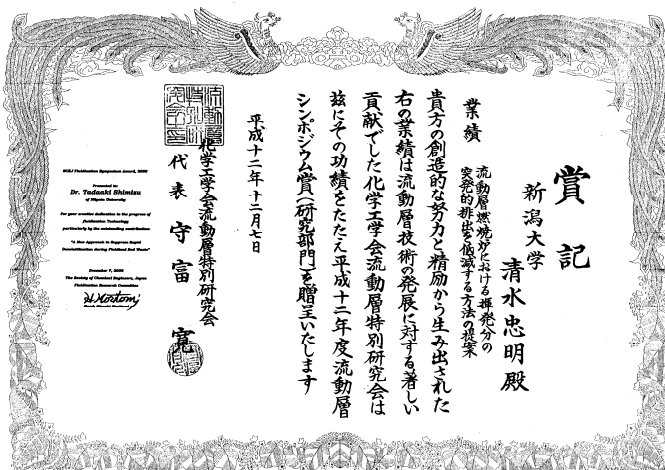 賞記
新潟大学
清水忠明殿
業績
流動層燃焼炉における揮発分の
突発的排出を低減する方法の提案
貴方の創造的な努力と精励から生み出された
右の業績は流動層技術の発展に対する著しい
貢献でした化学工学会流動層特別研究会は
茲にその功績をたたえ平成十二年度流動層
シンポジウム賞(研究部門)を贈呈いたします
平成十二年十二月七日
化学工学会流動層特別研究会
代表 守富 寛
SCEJ Fluidization Symposium Award, 2000
Presented to
Dr. Tadaaki Shimizu
of Niigata University
For your creative dedication to the progress of
Fluidization Technology,
particularly by the outstanding contribution:
"A New Approach to Suppress Rapid
Devolatilization during Fluidized Bed Waste"
December 7, 2000
The Society of Chemical Engineers, Japan
Fluidization Research Committee